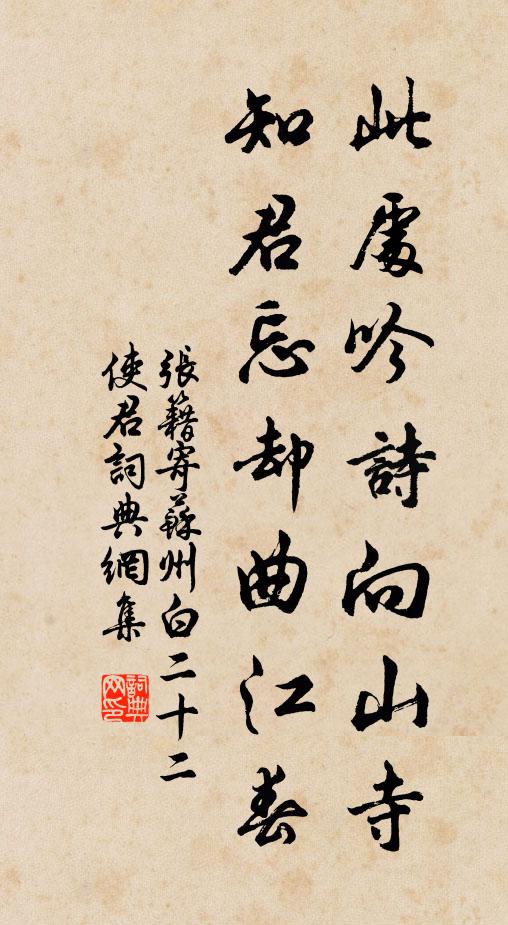 此處吟詩向山寺
知君忘却曲江春
張籍寄蘇州白二十二
使君詞典網集
詞典網印